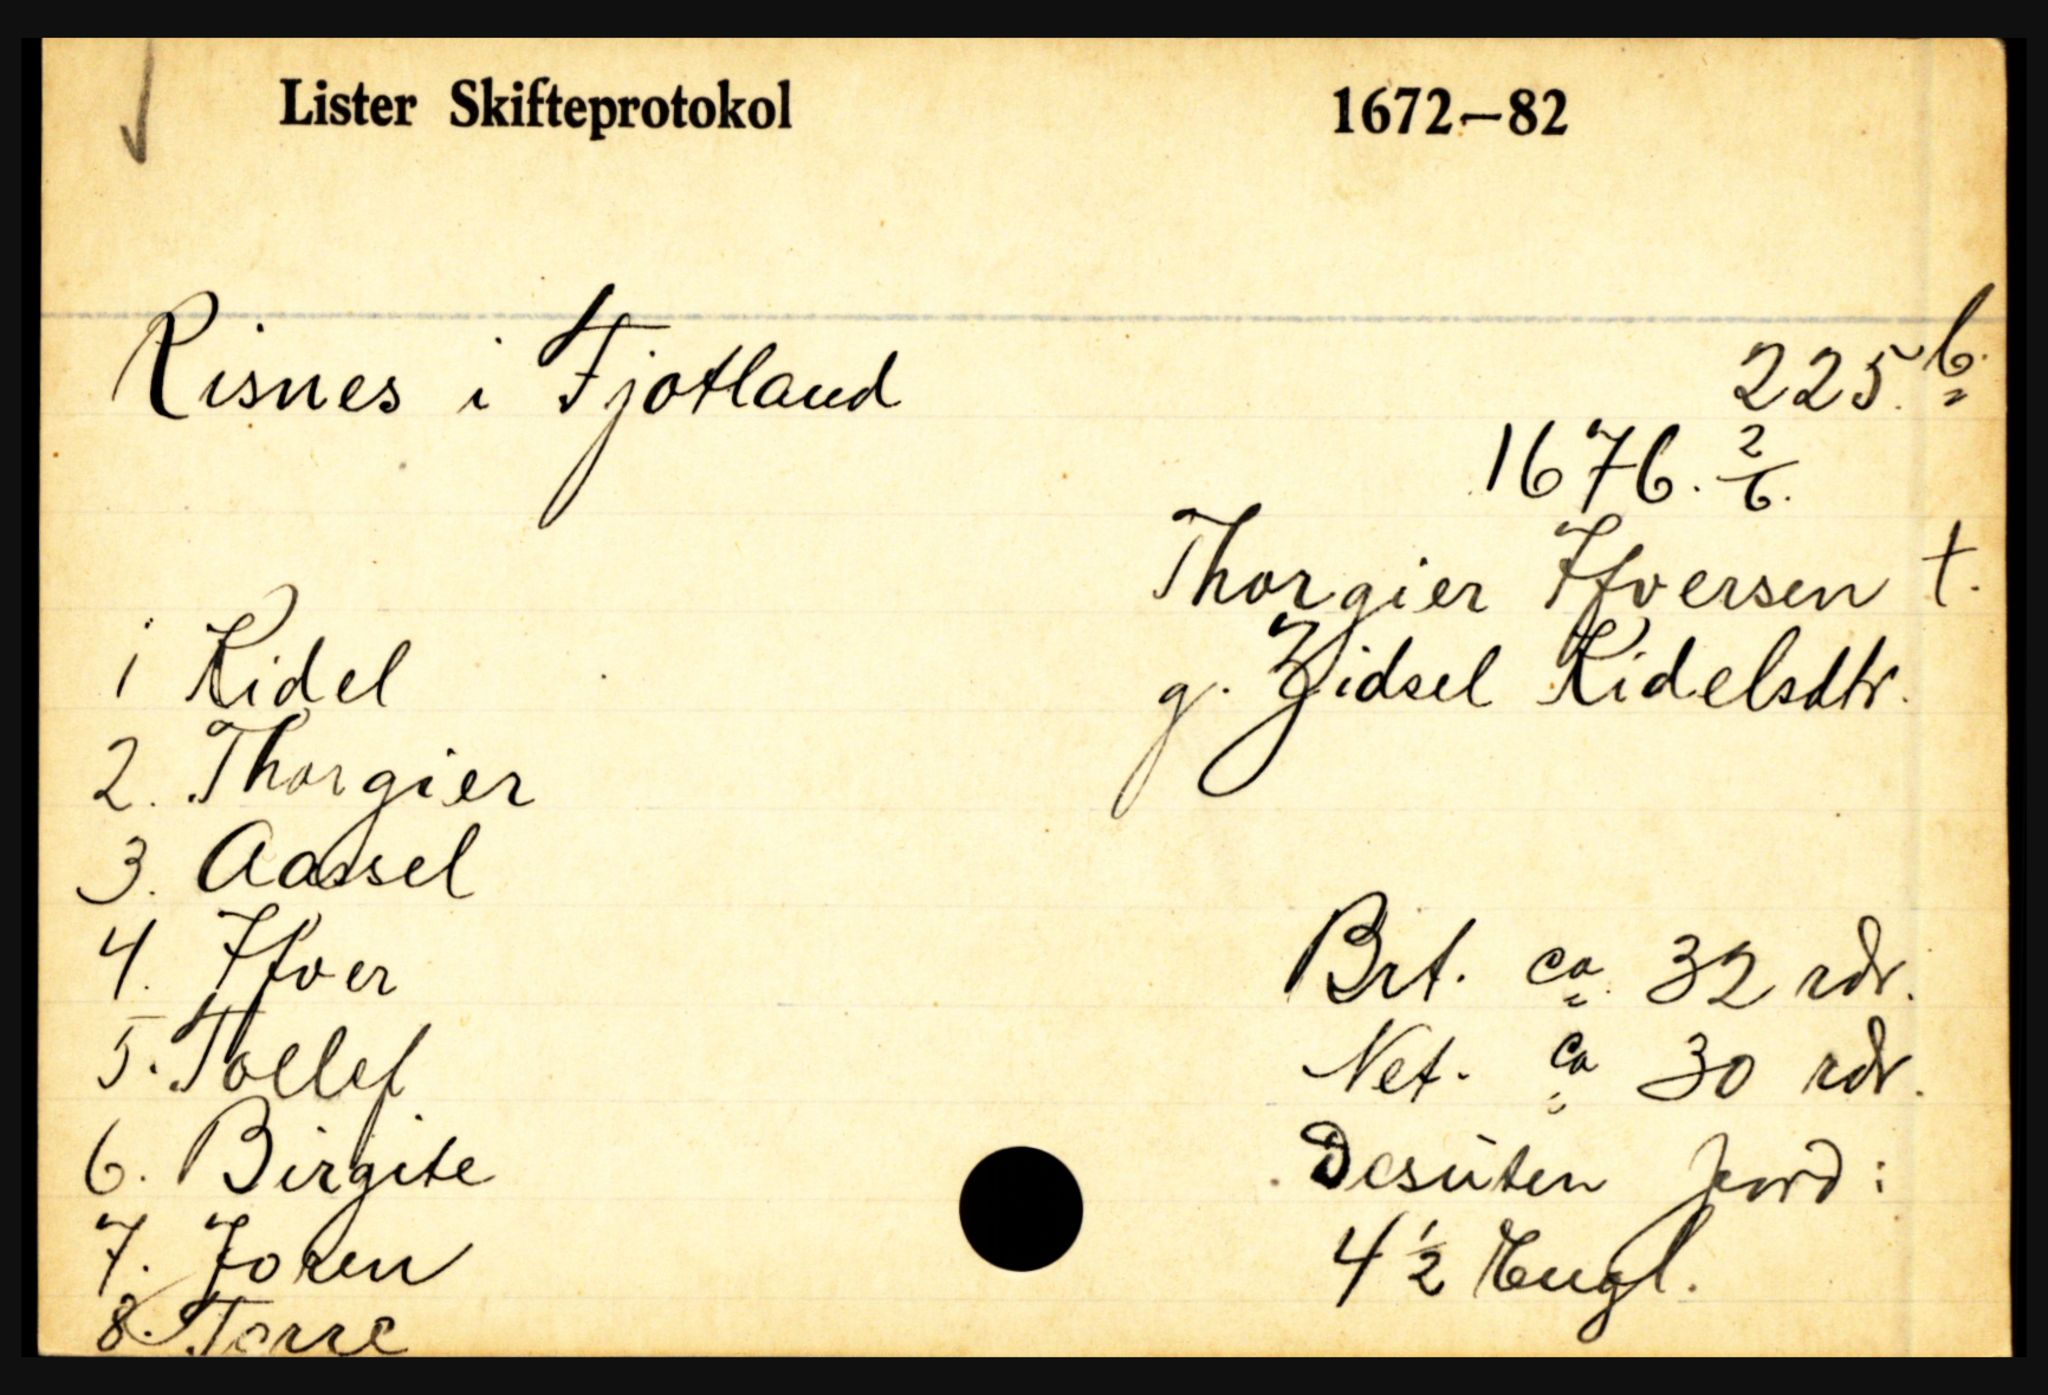 Lister Skifteprotokol 1672–82
Risnes i Fjotland 225. b.
1676. 2/6.
Thorgier Ifversen †.
g. Zidsel Kidelsdtr.
1 Kidel
2. Thorgier
3. Aassel
4. Ifver
5. Tollef
6. Birgite
7. Joren
8. Torre
Brt. ca. 32 rdr.
Net. ca 30 rdr.
Desuten jord:
4 1/2 Eugl.